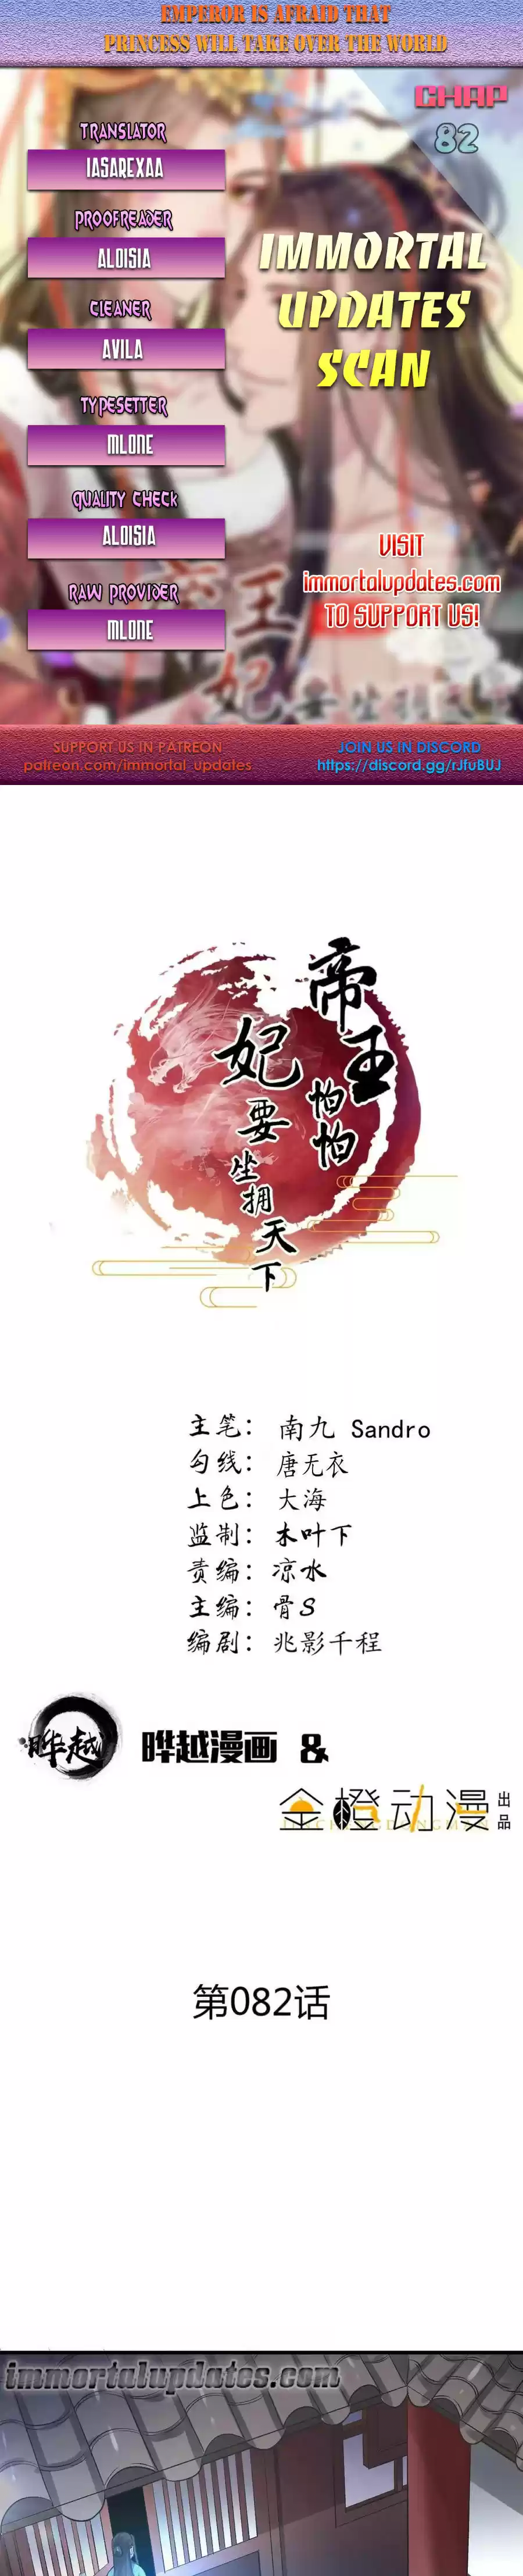 EMPEROR IS AFRAID THAT
PRINCESS WILL TAKE OVER THE WORLD
CHAP
82
TRANSLATOR
IASAREXAA
PROOFREADER
ALOISIA
CLEANER
AVILA
TYPESETTER
MLONE
QUALITY CHECK
ALOISIA
RAW PROVIDER
MLONE
IMMORTAL
UPDATES
SCAN
VISIT
immortalupdates.com
TO SUPPORT US!
SUPPORT US IN PATREON
patreon.com/immortal_updates
JOIN US IN DISCORD
https://discord.gg/rJfuBUJ
帝王怕怕
妃要坐拥天下
主笔： 南九 Sandro
勾线： 唐无衣
上色： 大海
监制： 木叶下
责编： 凉水
主编： 骨S
编剧： 兆影千程
晔越
晔越漫画 &
金橙动漫 出品
第082话
immortalupdates.com